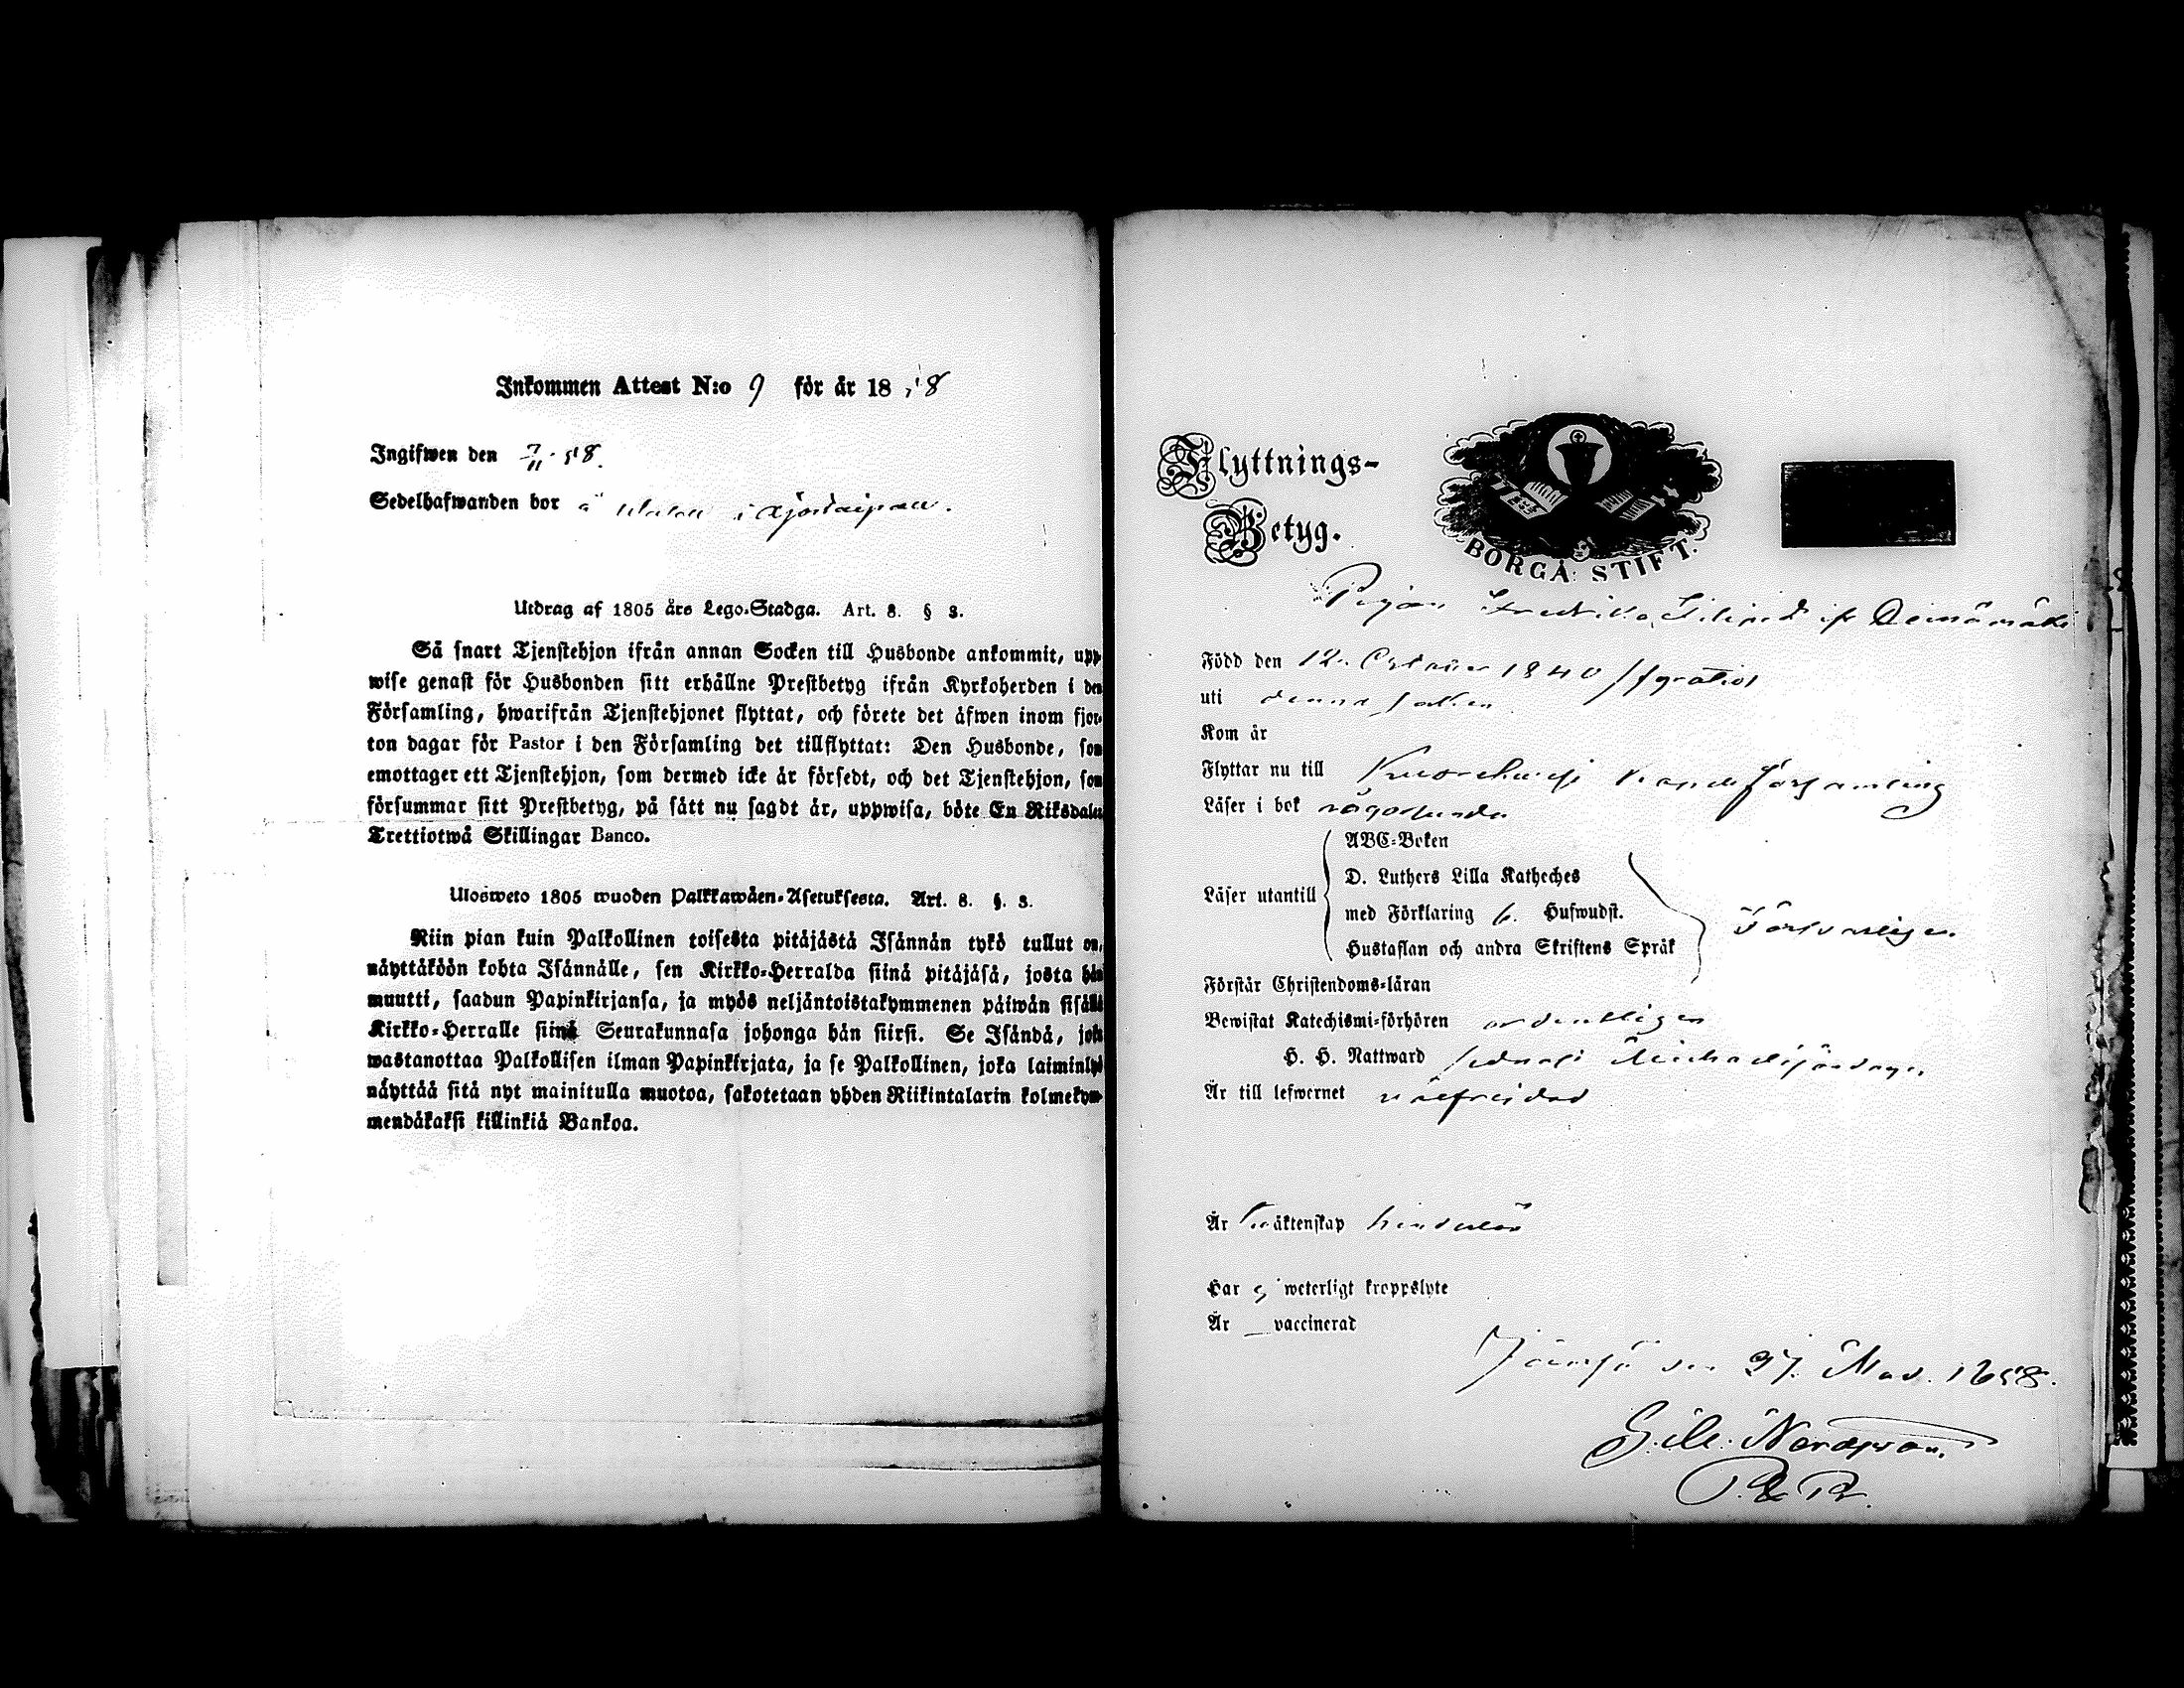 Inkommen Attest N:o 9 för år 1858
Ingifwen den 7/11 58.
Sedelhafwanden bor å i
Utdrag af 1805 års Lego-Stadga. Art. 8. § 3.
Så snart Tjenstehjon ifrån annan Socken till Husbonde ankommit, upp-
wise genast för Husbonden sitt erhållne Prestbetyg ifrån Kyrkoherden i den
Församling, hwarifrån Tjenstehjonet flyttat, och förete det äfwen inom fjor-
ton dagar för Pastor i den Församling det tillflyttat: Den Husbonde, som
emottager ett Tjenstehjon, som dermed icke är försedt, och det Tjenstehjon, som
försummar sitt Prestbetyg, på sätt nu sagdt är, uppwisa, böte En Riksdaler
Trettiotwå Skillingar Banco.
Ulosweto 1805 wuoden Palkkawäen-Asetuksesta. Art. 8. §. 3.
Niin pian kuin Palkollinen toisesta pitäjästä Isännän tykö tullut on,
näyttäköön kohta Isännälle, sen Kirkko-Herralda siinä pitäjäsä, josta hän
muutti, saadun Papinkirjansa, ja myös neljäntoistakymmenen päiwän sisällä
Kirkko-Herralle siinä Seurakunnasa johonga hän siirsi. Se Isändä, joka
wastanottaa Palkollisen ilman Papinkirjata, ja se Palkollinen, joka laiminlyö
näyttää sitä nyt mainitulla muotoa, sakotetaan yhden Riikintalarin kolmekym-
mendäkaksi killinkiä Bankoa.
Flyttnings-
Betyg.
BORGÅ STIFT.
Pigan Fredrika
Född den 12. October 1840 /fyratio/
uti denna socken
Kom år
Flyttar nu till församling
Läser i bok någorlunda
ABC-Boken
D. Luthers Lilla Katheches
Läser utantill
med Förklaring 6. Hufwudst.
Hustaflan och andra Skriftens Språk
Försvarligen
Förstår Christendoms-läran
Bewistat Katechismi-förhören ordentligen
H. H. Nattward sednast Michaelisöndagen
Är till lefwernet wälfrejdad
Är till äktenskap hinderlös
Har ej weterligt kroppslyte
Är vaccinerad
Jämsä den 27. 1858.